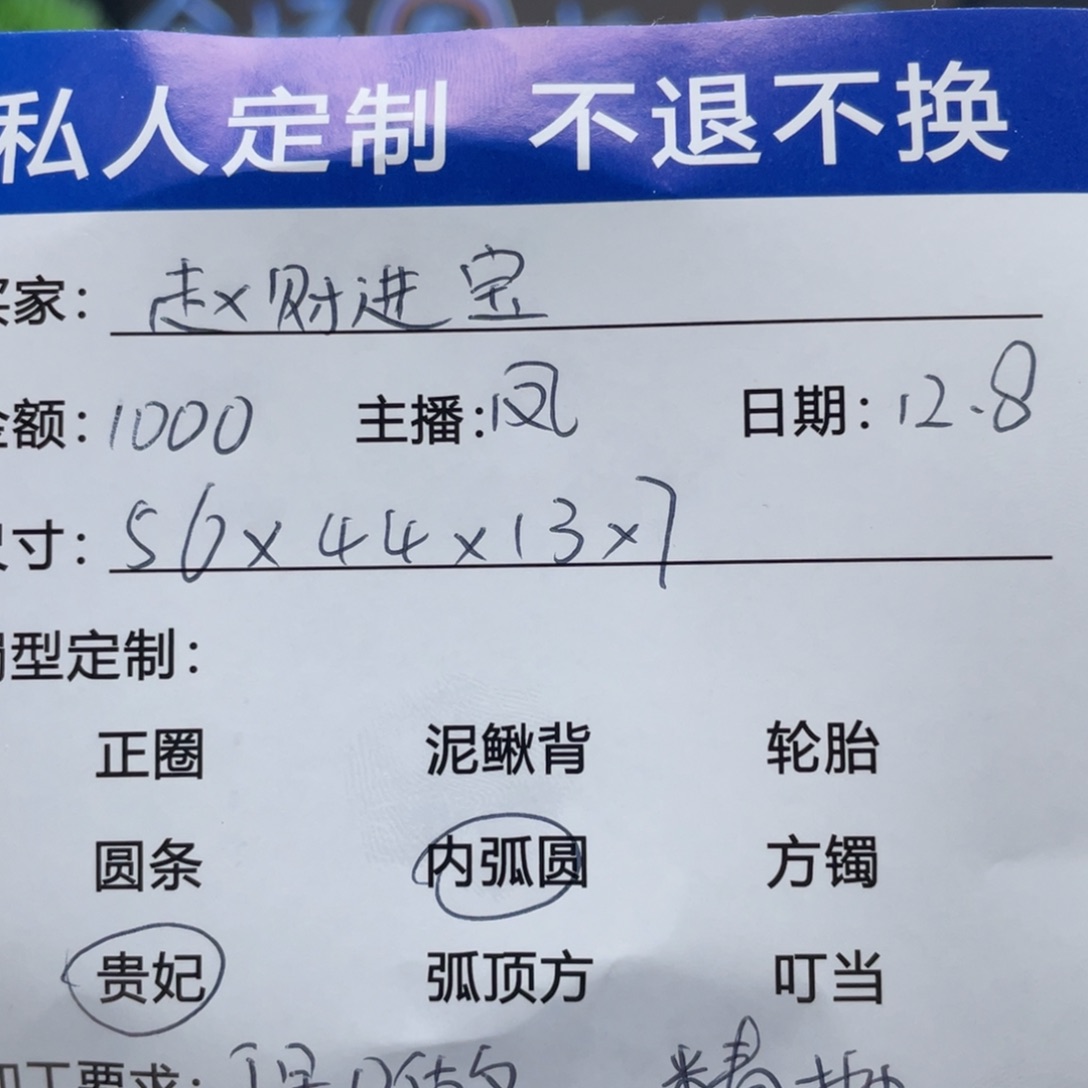 私人定制 不退不换
买家：赵财进宝
金额：1000 主播：凤 日期：12.8
尺寸：56×44×13×7
镯型定制：
正圈 泥鳅背 轮胎
圆条 内弧圆 方镯
贵妃 弧顶方 叮当
加工要求：